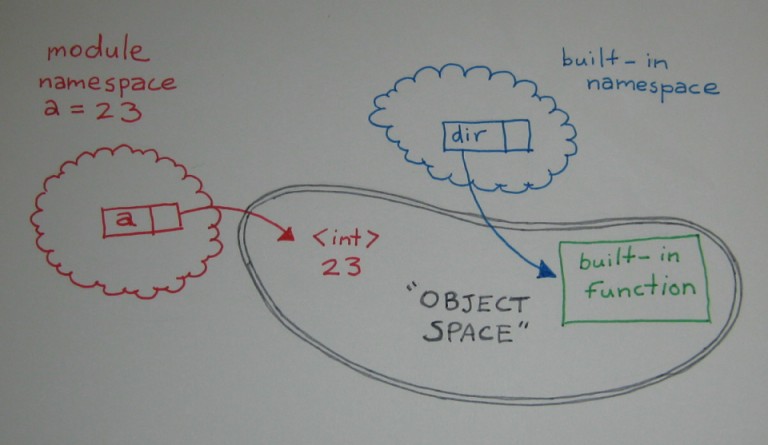 module
namespace
a = 23
built-in
namespace
dir
a
<int>
23
built-in
function
"OBJECT
SPACE"